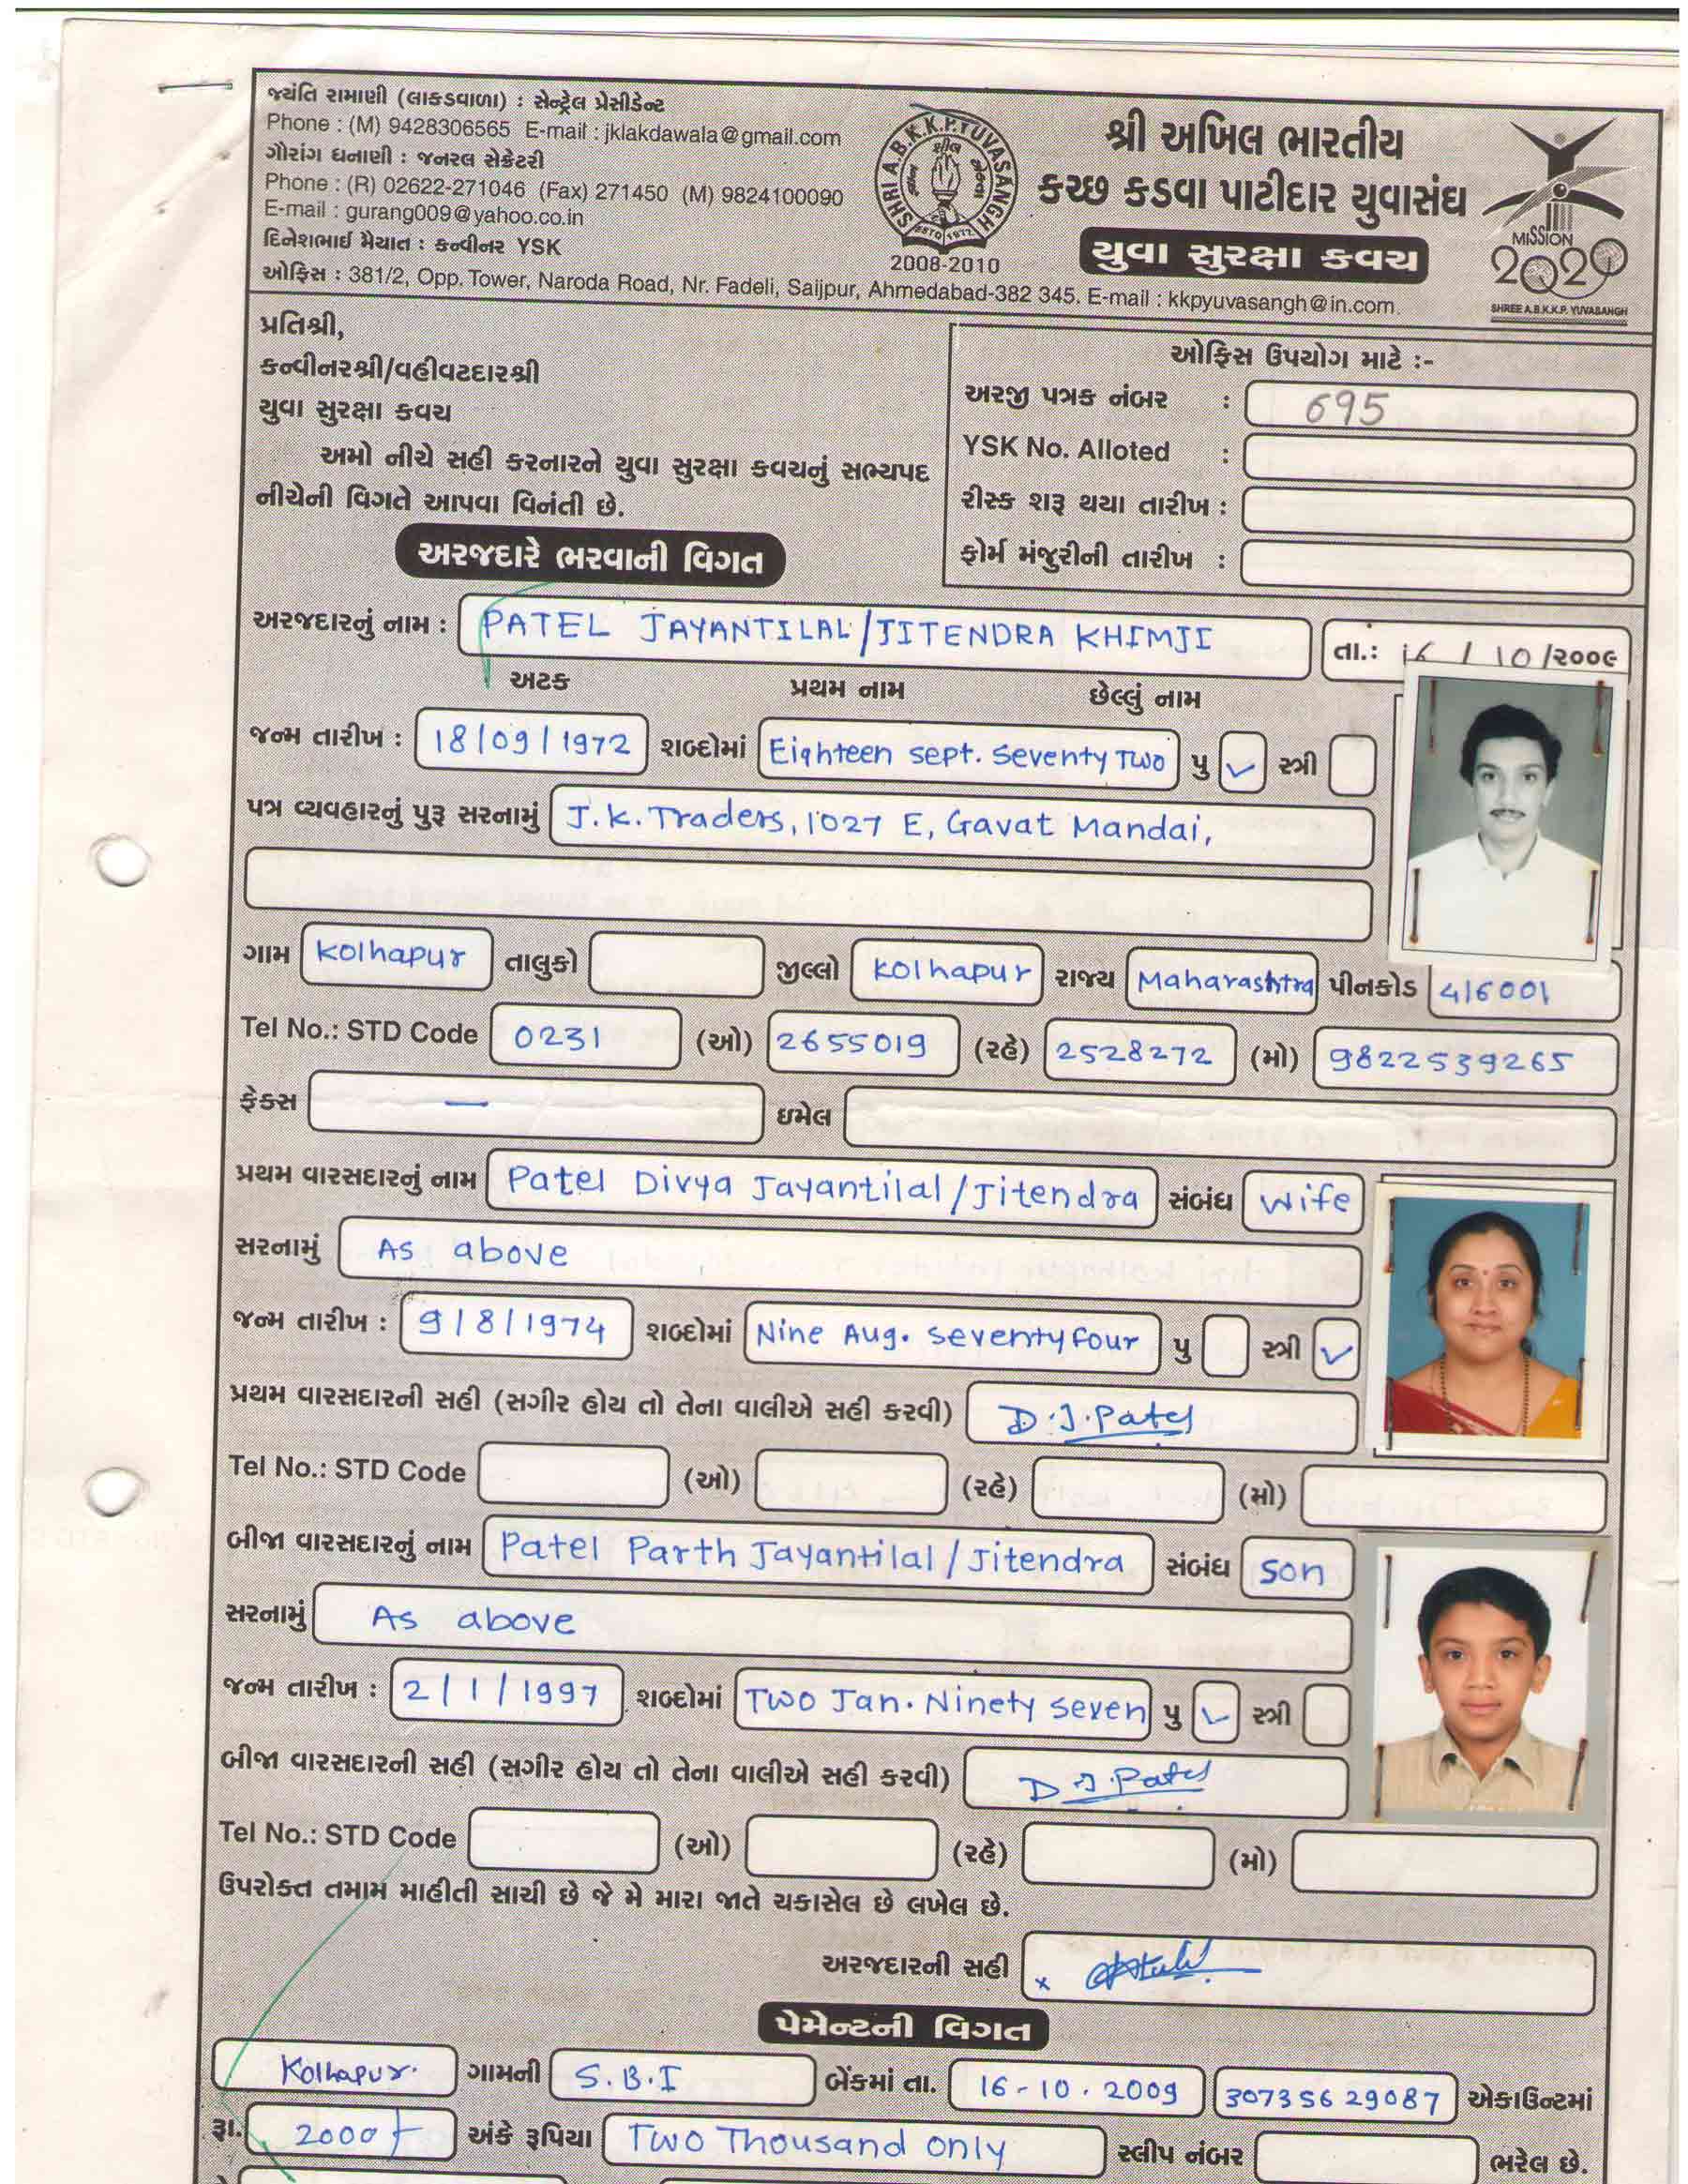 જયંતિ રામાણી (લાકડવાળા) : સેન્ટ્રેલ પ્રેસીડેન્ટ
Phone : (M) 9428306565 E-mail : jklakdawala@gmail.com
ગૌરાંગ ધનાણી : જનરલ સેક્રેટરી
Phone : (R) 02622-271046 (Fax) 271450 (M) 9824100090
E-mail : gurang009@yahoo.co.in
દિનેશભાઈ મૈયાત : કન્વીનર YSK
ઓફિસ : 381/2, Opp. Tower, Naroda Road, Nr. Fadeli, Saijpur, Ahmedabad-382 345. E-mail : kkpyuvasangh@in.com.
SHRI A.B.K.K.P. YUVASANGH
ESTD 1972
2008-2010
શ્રી અખિલ ભારતીય
કચ્છ કડવા પાટીદાર યુવાસંઘ
યુવા સુરક્ષા કવચ
MISSION
2020
SHREE A.B.K.K.P. YUVASANGH
પ્રતિશ્રી,
કન્વીનરશ્રી/વહીવટદારશ્રી
યુવા સુરક્ષા કવચ
અમો નીચે સહી કરનારને યુવા સુરક્ષા કવચનું સભ્યપદ
નીચેની વિગતે આપવા વિનંતી છે.
ઓફિસ ઉપયોગ માટે :-
અરજી પત્રક નંબર : 695
YSK No. Alloted :
રીસ્ક શરૂ થયા તારીખ :
ફોર્મ મંજુરીની તારીખ :
અરજદારે ભરવાની વિગત
અરજદારનું નામ : PATEL JAYANTILAL/JITENDRA KHIMJI તા.: 16 / 10 /૨૦૦૯
અટક પ્રથમ નામ છેલ્લું નામ
જન્મ તારીખ : 18/09/1972 શબ્દોમાં Eighteen sept. Seventy Two પુ ✓ સ્ત્રી
પત્ર વ્યવહારનું પુરૂ સરનામું J.K. Traders, 1027 E, Gavat Mandai,
ગામ Kolhapur તાલુકો જીલ્લો Kolhapur રાજ્ય Maharashtra પીનકોડ 416001
Tel No.: STD Code 0231 (ઓ) 2655019 (રહે) 2528272 (મો) 9822539265
ફેક્સ — ઇમેલ
પ્રથમ વારસદારનું નામ Patel Divya Jayantilal/Jitendra સંબંધ Wife
સરનામું As above
જન્મ તારીખ : 9/8/1974 શબ્દોમાં Nine Aug. Seventy four પુ સ્ત્રી ✓
પ્રથમ વારસદારની સહી (સગીર હોય તો તેના વાલીએ સહી કરવી) D.J.Patel
Tel No.: STD Code (ઓ) (રહે) (મો)
બીજા વારસદારનું નામ Patel Parth Jayantilal/Jitendra સંબંધ Son
સરનામું As above
જન્મ તારીખ : 2/1/1997 શબ્દોમાં Two Jan. Ninety Seven પુ ✓ સ્ત્રી
બીજા વારસદારની સહી (સગીર હોય તો તેના વાલીએ સહી કરવી) D J.Patel
Tel No.: STD Code (ઓ) (રહે) (મો)
ઉપરોક્ત તમામ માહીતી સાચી છે જે મે મારા જાતે ચકાસેલ છે લખેલ છે.
અરજદારની સહી x
પેમેન્ટની વિગત
Kolhapur. ગામની S.B.I બેંકમાં તા. 16-10.2009 30735629087 એકાઉન્ટમાં
રૂા. 2000/- અંકે રૂપિયા Two Thousand only સ્લીપ નંબર ભરેલ છે.